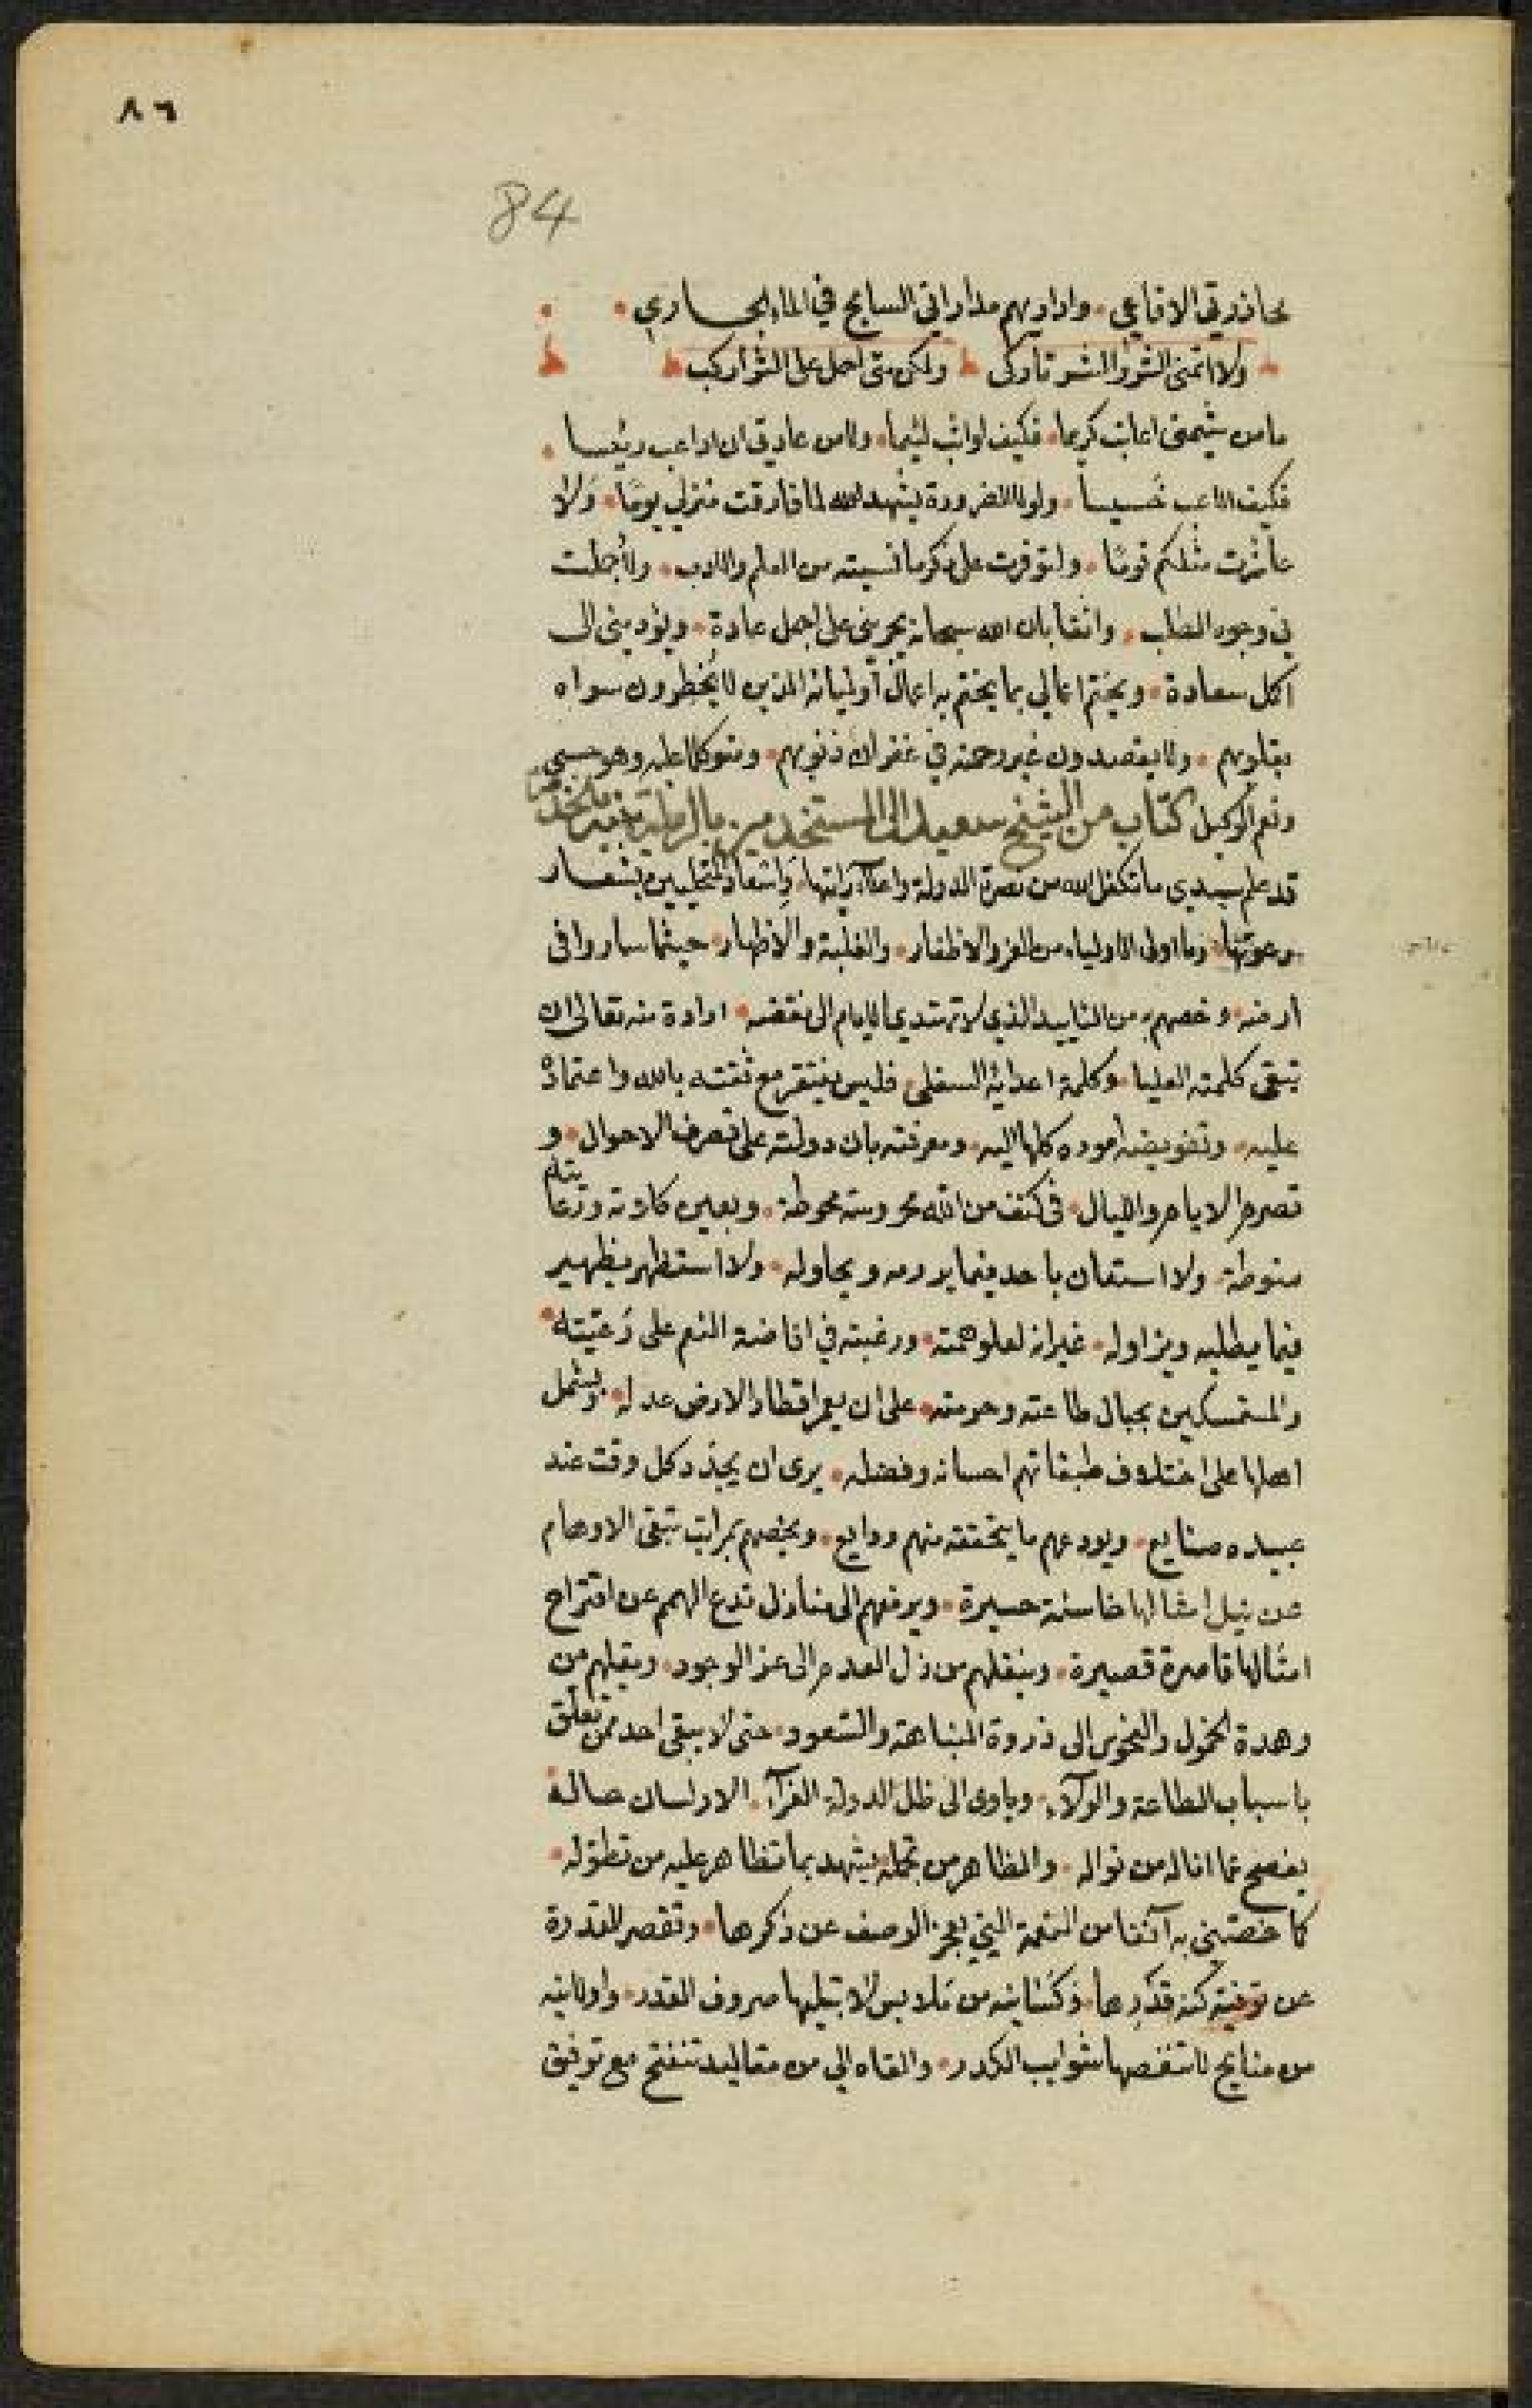 ٨٦
84
محاذرتي الافاعي • واداريهم مداراتي السابح في الماء الجاري •
ولا اتمنى الشر والشر تاركى ولكن متى احمل على الشر اركب
ما من شيمتى اعاتب كريما • فكيف اواثب لئيما • ولا من عادتي ان اداعب رئيسا •
فكيف الاعب خسيسا • ولولا الضرورة يشهد الله لما فارقت منزلي يومًا • ولا
عاشرت مثلكم قومًا • ولتوفرت على ذكر ما نسيته من العلم والادب • ولأجملت
في وجوه الطلب • واثقا بان الله سبحانه يجريني على اجمل عادة • ويؤديني الى
اكمل سعادة • ويختم اعمالي بما يختم به اعمال أوليائه الذين لا يُخطرون سواه
بقلوبهم • ولا يقصدون غير رحمته في غفران ذنوبهم • ومتوكلا عليه وهو حسبي
ونعم الوكيل كتاب من الشيخ سعيد الى المستخدمين بالرملة
قد علم سيدي ما تكفل الله من نصرة الدولة واعلاء راياتها • واسعاد المتحلين بشعار
دعوتها • وما اولى الاولياء من العز والاظفار • والغلبة والاظهار • حيثما ساروا فى
أرضه • وخصهم به من التاييد الذي لا تهتدي الايام الى نقضه • ارادة منه تعالى ان
تبقى كلمته العليا • وكلمة اعدائه السفلى • فليس يفتقر مع ثقته بالله واعتماده
عليه • وتفويضه اموره كلها اليه • ومعرفته بان دولته على تصرف الاحوال • و
تصرم الايام والليال • في كنف من الله محروسة محوطة • وبعين كلاءته
منوطة • ولا استعان باحد فيما يرومه ويحاوله • ولا استظهر بظهير
فيما يطلبه ويزاوله • غير انه لعلو همته • ورغبته في افاضة النعم على رَعيّته •
والمستمسكين بحبال طاعته وحرمته • على ان يعم اقطار الارض عدله • ويشمل
اهلها على اختلاف طبقاتهم احسانه وفضله • يرى ان يجدد كل وقت عند
عبيده صنايع • ويودعهم ما يتحققه منهم ودايع • ويخصهم بمراتب تبقى الاوهام
عن نيل امثالها خاسئة حسيرة • ويرفعهم الى منازل تدع الهمم عن اقتراح
امثالها قاصرة قصيرة • وينقلهم من ذل العدم الى عز الوجود • ويقيلهم من
وهدة الخمول والنحوس الى ذروة النباهة والسعود • حتى لا يبقى احد ممن تعلق
باسباب الطاعة والولآء • وياوى الى ظل الدولة الغرآء • الا ولسان حاله
يفصح عما اناله من نواله • والظاهر من تجمله يشهد بما تظاهر عليه من تطوله •
كما خصني به آنفا من النعمة التي يعجز الوصف عن ذكرها • وتقصر المقدرة
عن توفية كنه قدرها • وكسانيه من ملابس لا تبليها صروف القدر • واولانيه
من منايح لا تنغصها شوايب الكدر • والقاه الي من مقاليد تنفتح مع توفيق